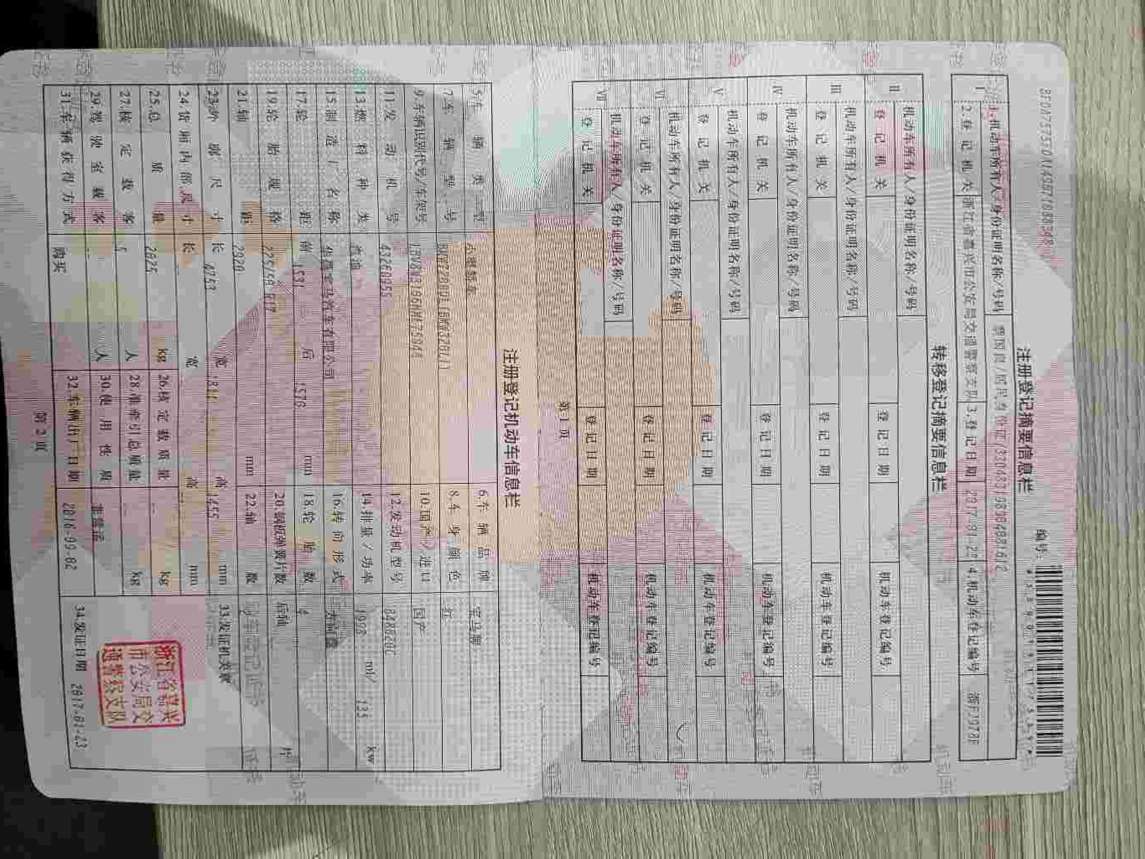 注册登记摘要信息栏
编号:
Ⅰ
1.机动车所有人/身份证明名称/号码
2.登记机关
浙江省嘉兴市公安局交通警察支队
3.登记日期
2017-01-23
4.机动车登记编号
转移登记摘要信息栏
Ⅱ
机动车所有人/身份证明名称/号码
登记机关
登记日期
机动车登记编号
Ⅲ
机动车所有人/身份证明名称/号码
登记机关
登记日期
机动车登记编号
Ⅳ
机动车所有人/身份证明名称/号码
登记机关
登记日期
机动车登记编号
Ⅴ
机动车所有人/身份证明名称/号码
登记机关
登记日期
机动车登记编号
Ⅵ
机动车所有人/身份证明名称/号码
登记机关
登记日期
机动车登记编号
Ⅶ
机动车所有人/身份证明名称/号码
登记机关
登记日期
机动车登记编号
第 1 页
注册登记机动车信息栏
5.车辆类型
6.车辆品牌 宝马牌
7.车辆型号
8.车身颜色 红
9.车辆识别代号/车架号
10.国产/进口 国产
11.发动机号
12.发动机型号 B48B20C
13.燃料种类 汽油
14.排量/功率 1998 ml/ 135 kw
15.制造厂名称 华晨宝马汽车有限公司
16.转向形式 方向盘
17.轮距 前 1531 后 1573 mm
18.轮胎数 4
19.轮胎规格 225/50 R17
20.钢板弹簧片数 后轴 片
21.轴距 2920 mm
22.轴数
23.外廓尺寸 长 4753 宽 1811 高 1455 mm
33.发证机关章
24.货厢内部尺寸 长 宽 高 mm
浙江省嘉兴
市公安局交
通警察支队
25.总质量 2025 kg
26.核定载质量 -- kg
27.核定载客 5 人
28.准牵引总质量 -- kg
29.驾驶室载客 -- 人
30.使用性质 非营运
31.车辆获得方式 购买
32.车辆出厂日期 2016-09-02
34.发证日期 2017-01-23
第 2 页